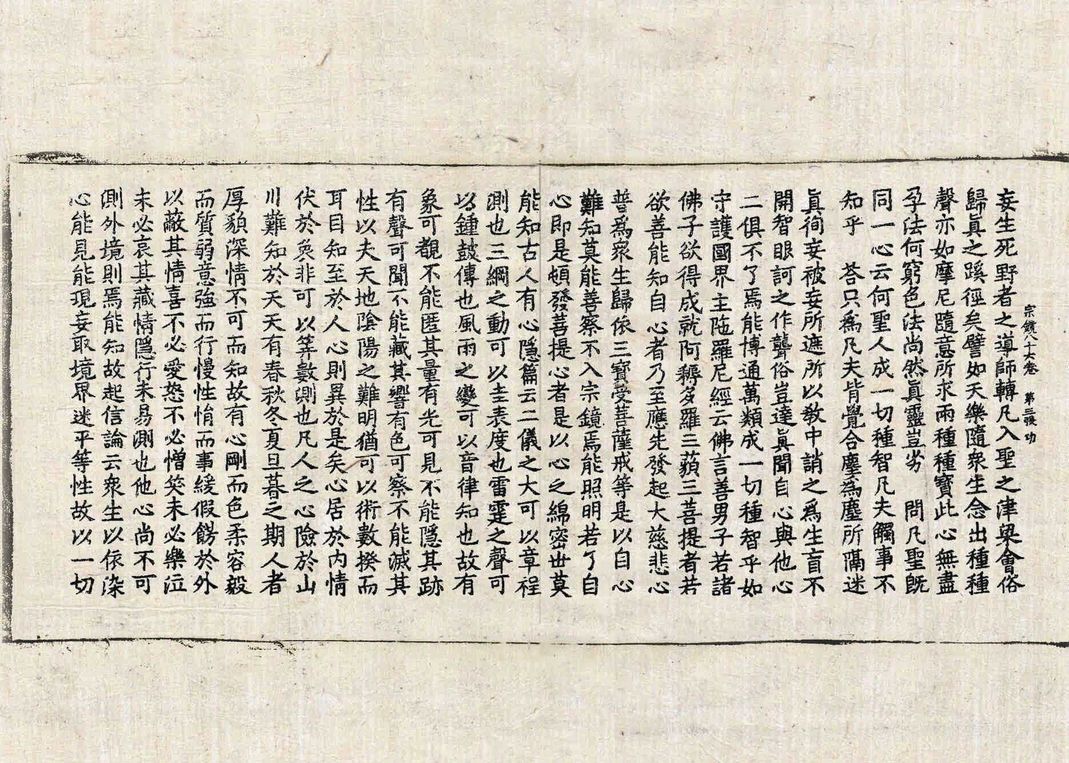 宗鏡八十六卷 第三張 功
妄生死野者之導師轉凡入聖之津梁會俗
歸眞之蹊徑矣譬如天樂隨衆生念出種種
聲亦如摩尼隨意所求雨種種寶此心無盡
孕法何窮色法尚然眞靈豈劣 問凡聖旣
同一心云何聖人成一切種智凡夫觸事不
知乎 荅只爲凡夫背覺合塵爲塵所隔迷
眞徇妄被妄所遮所以敎中誚之爲生盲不
開智眼訶之作聾俗豈達眞聞自心與他心
二俱不了焉能博通萬類成一切種智乎如
守護國界主陁羅尼經云佛言善男子若諸
佛子欲得成就阿耨多羅三藐三菩提者若
欲善能知自心者乃至應先發起大慈悲心
普爲衆生歸依三寶受菩薩戒等是以自心
難知莫能善察不入宗鏡焉能照明若了自
心即是頓發菩提心者是以心之綿密世莫
能知古人有心隱篇云二儀之大可以章程
測也三綱之動可以圭表度也雷霆之聲可
以鍾鼓傳也風雨之變可以音律知也故有
象可覩不能匿其量有光可見不能隱其跡
有聲可聞不能藏其響有色可察不能滅其
性以夫天地陰陽之難明猶可以術數揆而
耳目知至於人心則異於是矣心居於內情
伏於裏非可以筭數測也凡人之心險於山
川難知於天天有春秋冬夏旦暮之期人者
厚貌深情不可而知故有心剛而色柔容毅
而質弱意強而行慢性悁而事緩假餝於外
以蔽其情喜不必愛怒不必憎笑未必樂泣
未必哀其藏情隱行未易測也他心尚不可
測外境則焉能知故起信論云衆生以依染
心能見能現妄取境界迷平等性故以一切